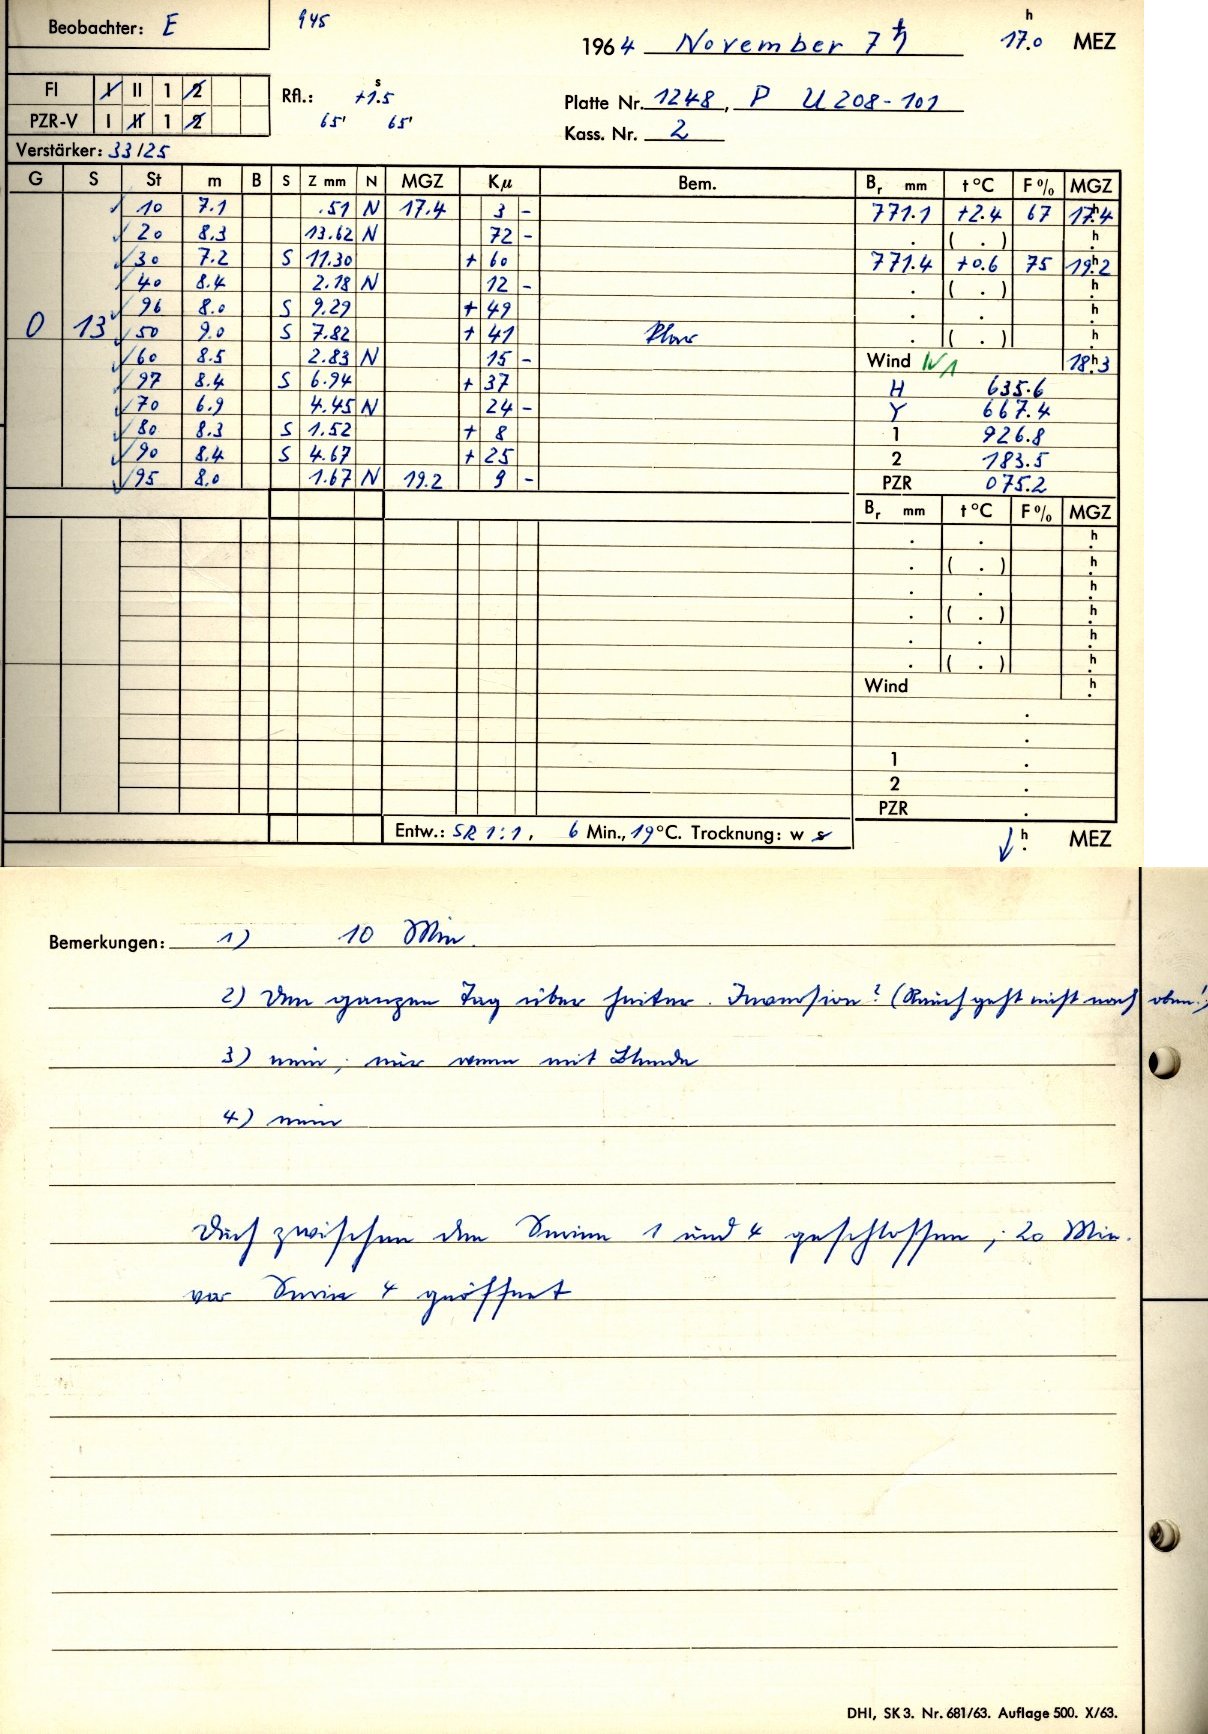 Beobachter: E
945
1964 November 7 ♄ 17.0 h MEZ
FI I II 1 2
PZR-V I II 1 2
Rfl.: +1.5 s
65' 65'
Platte Nr. 1248, P U 208-101
Kass. Nr. 2
Verstärker: 33/25
G S St m B S Z mm N MGZ Kμ Bem. Br mm t °C F % MGZ
10 7.1 .51 N 17.4 3 - 771.1 +2.4 67 17.4 h
20 8.3 13.62 N 72 - . ( . ) h
30 7.2 S 11.30 + 60 771.4 +0.6 75 19.2 h
40 8.4 2.18 N 12 - . ( . ) h
96 8.0 S 9.29 + 49 . . h
0 13 50 9.0 S 7.82 + 41 . ( . ) h
60 8.5 2.83 N 15 - Wind N 1 18.3 h
97 8.4 S 6.94 + 37 H 635.6
70 6.9 4.45 N 24 - Y 667.4
80 8.3 S 1.52 + 8 1 926.8
90 8.4 S 4.67 + 25 2 183.5
95 8.0 1.67 N 19.2 9 - PZR 075.2
Br mm t °C F % MGZ
. . h
. ( . ) h
. . h
. ( . ) h
. . h
. ( . ) h
Wind h
.
.
1 .
2 .
PZR .
Entw.: SR 1:1, 6 Min., 19 °C. Trocknung: w s
↓ h MEZ
Bemerkungen: 1) 10 Min.
2) Den ganzen Tag über heiter. Inversion? (Rauch geht nicht nach oben!)
3) nein, nur wenn mit Blende
4) nein
Dach zwischen den Serien 1 und 4 geschlossen; 20 Min.
vor Serie 4 geöffnet
DHI, SK 3. Nr. 681/63. Auflage 500. X/63.